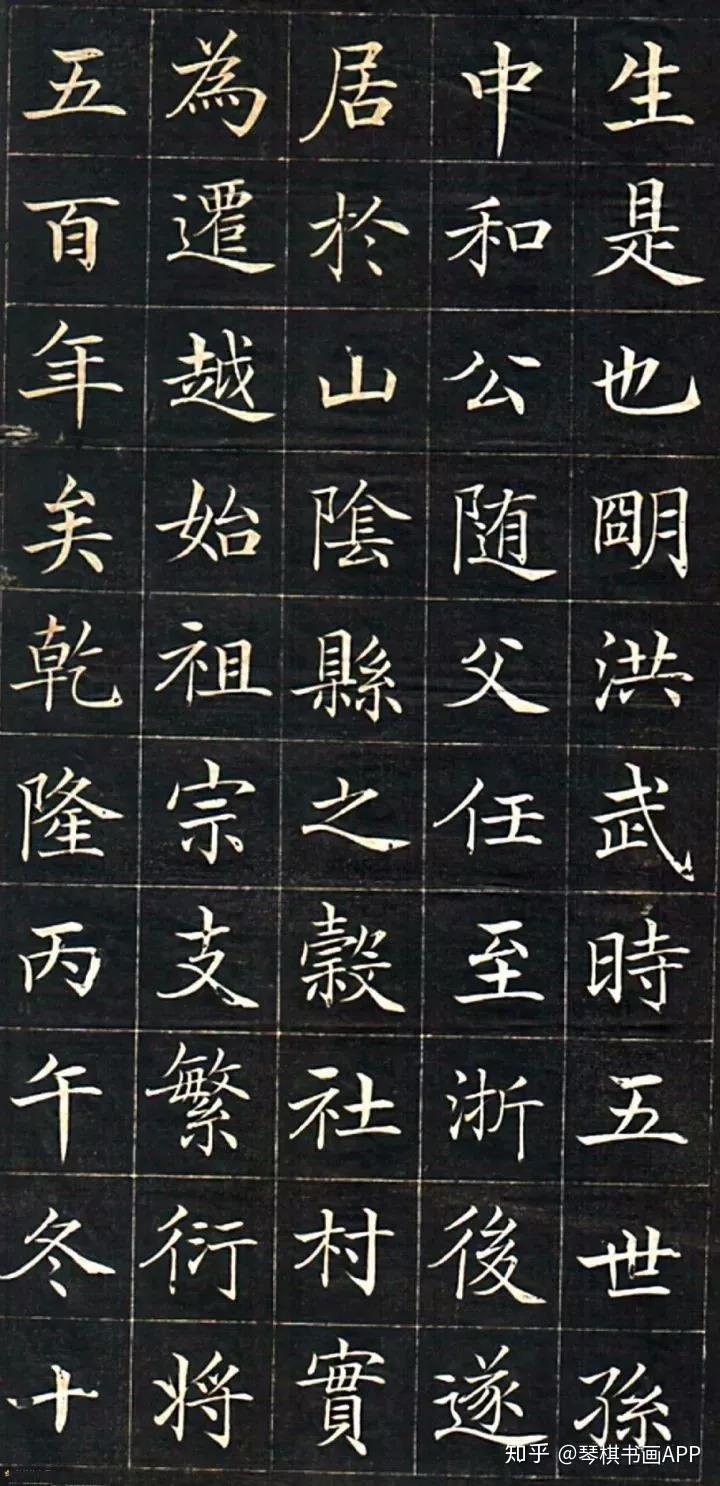 生是也朙洪武時五世孫
中和公随父任至浙後遂
居於山陰縣之穀社村實
為遷越始祖宗支繁衍將
五百年矣乾隆丙午冬十
知乎 @琴棋书画APP